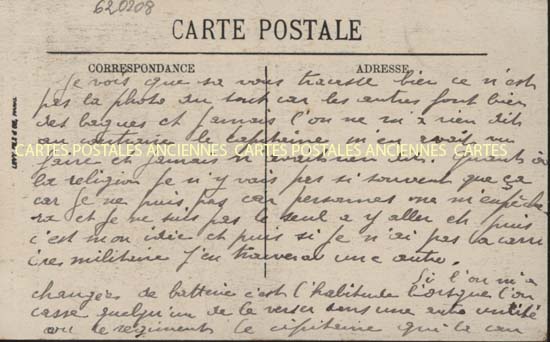 620208
CARTE POSTALE
CORRESPONDANCE
ADRESSE
Je vois que sa vous tracasse bien ce n'est
pas la photo du tout car les autres font bien
des bagues et jamais l'on ne m'a rien dit
au contraire le capitaine m'en avais vu
CARTES POSTALES ANCIENNES CARTES POSTALES ANCIENNES CARTES POSTALES ANCIENNES
faire et jamais n'avait rien dit. Quant à
la religion Je n'y vais pas si souvent que ça
car je ne puis pas car personnes me m'empêche
ra et je ne suis pas le seul a y aller et puis
c'est mon idée et puis si je n'ai pas a carri
ires militaire J'en trouverai une autre.
Si l'on m'a
changées de batterie c'est l'habitude lorsque l'on
casse quelqu'un de le verser dans une autre unité
ou le régiments le capitaine qui l'a